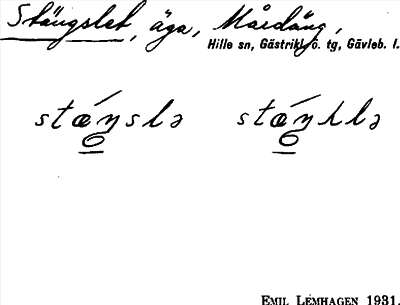 Stängslet, äga, Mårdäng,
Hille sn, Gästrikl. ö. tg, Gävleb. l.
stæŋslə stæŋʟlə
EMIL LÉMHAGEN 1931.